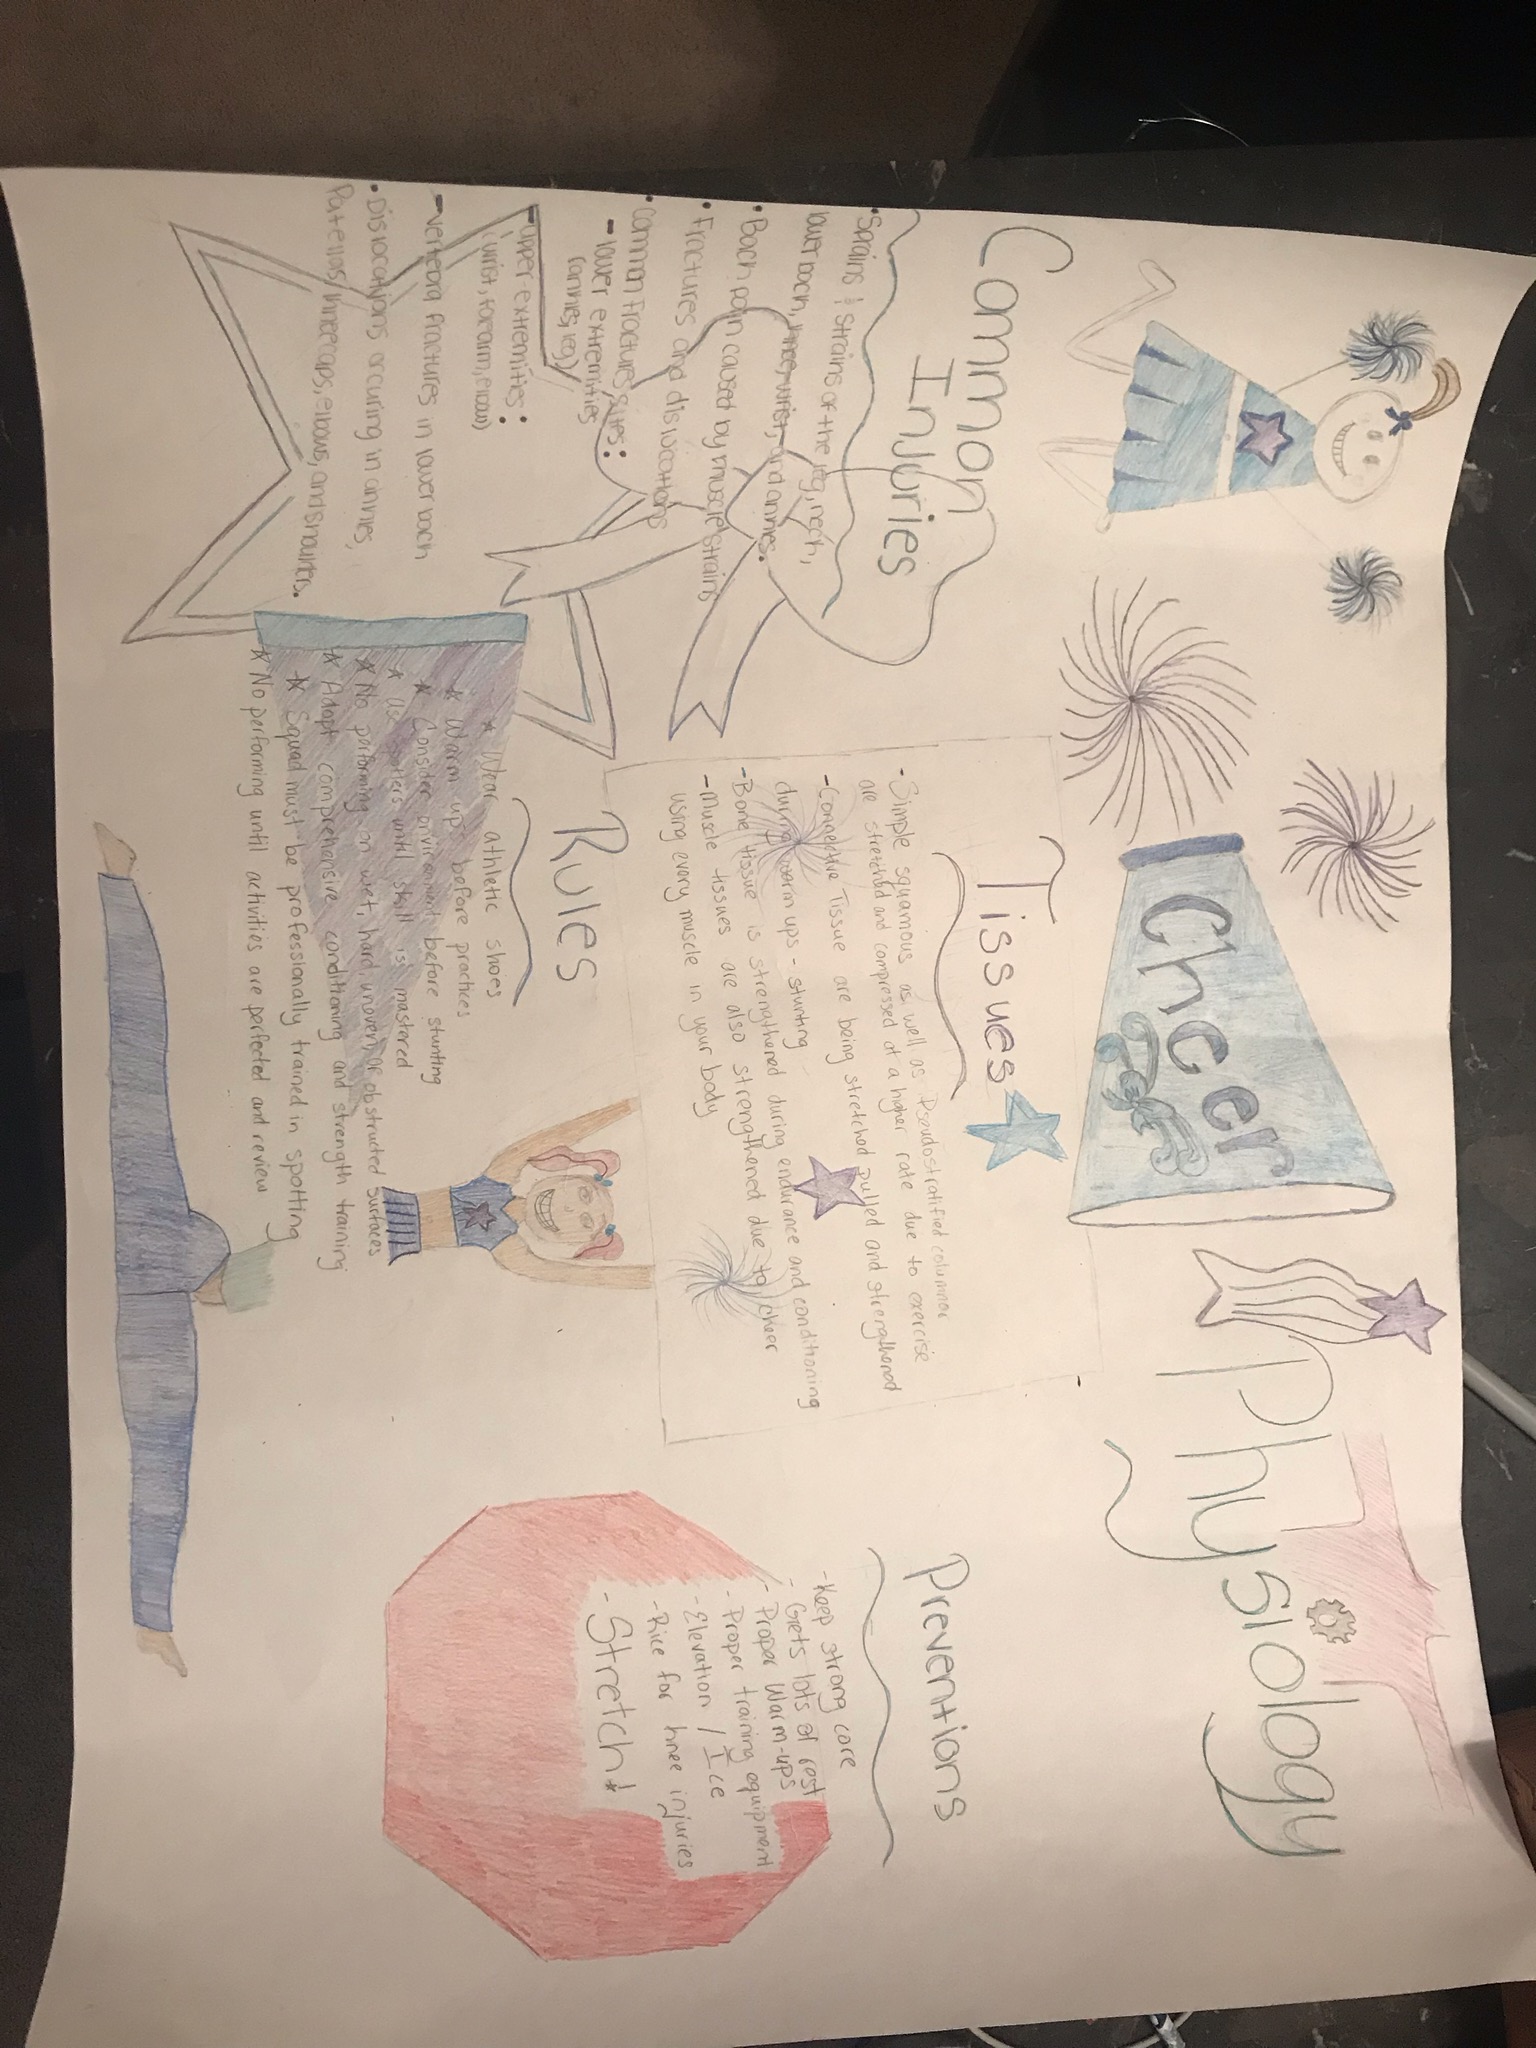 Cheer
Physiology
Common
Injuries
• Sprains & strains of the leg, neck,
lower back, knee, wrist, and ankles.
• Back pain caused by muscle strains
• Fractures and dislocations
• Common fractures sites:
- lower extremities
(ankles, leg)
- upper-extremities:
(wrist, forearm, elbow)
- vertebra fractures in lower back
• Dislocations occuring in ankles,
Patellas/kneecaps, elbows, and shoulders.
Tissues
- Simple squamous as well as Pseudostratified columnar
are stretched and compressed at a higher rate due to exercise
- Connective Tissue are being stretched pulled and strengthened
during warm ups - stunting
- Bone tissue is strengthened during endurance and conditioning
- Muscle tissues are also strengthened due to cheer
using every muscle in your body
Rules
* Wear athletic shoes
* Warm ups before practices
* Consider environment before stunting
* Use spotters until skill is mastered
* No performing on wet, hard, uneven, or obstructed surfaces
* Adapt comprehensive conditioning and strength training
* Squad must be professionally trained in spotting
* No performing until activities are perfected and review
Preventions
- Keep strong core
- Gets lots of rest
- Proper Warm-ups
- Proper training equipment
- Elevation / Ice
- Rice for knee injuries
- Stretch!